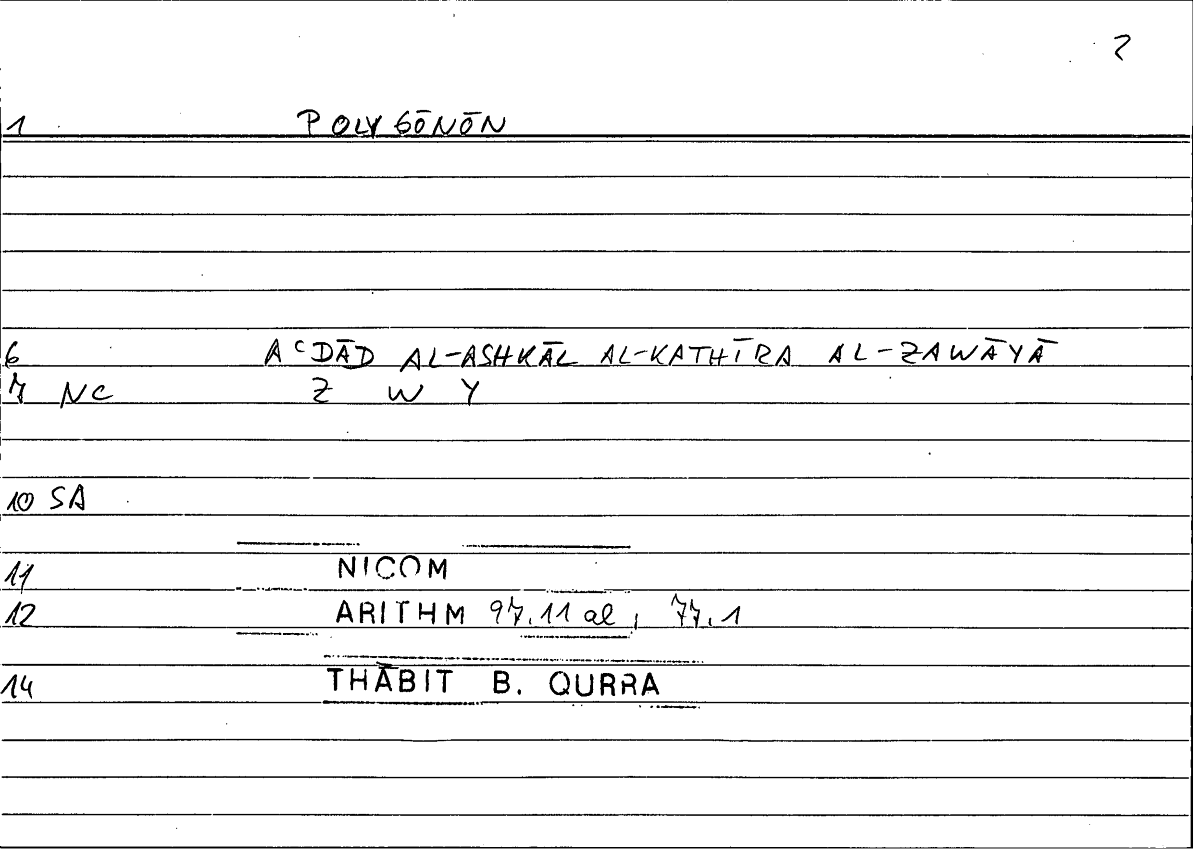 2
1 POLYGŌNŌN
6 AʿDĀD AL-ASHKĀL AL-KATHĪRA AL-ZAWĀYĀ
7 NC Z W Y
10 SA
11 NICOM
12 ARITHM 97.11 al, 77.1
14 THĀBIT B. QURRA